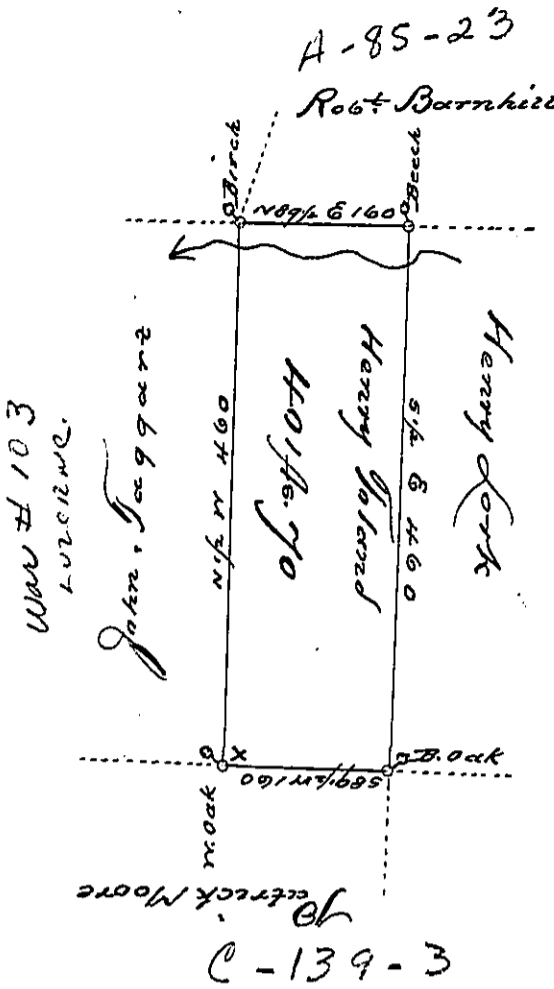 A-85-23
Robt. Barnhill
Birch
Beech
N89½ E 160
War # 103
Luzerne.
John Taggart
N.½ W 460
401 As. 70
Henry
S½ E 460
Henry York
W. Oak
X
S89½ W 160
B. Oak
Patrick Moore
C-139-3